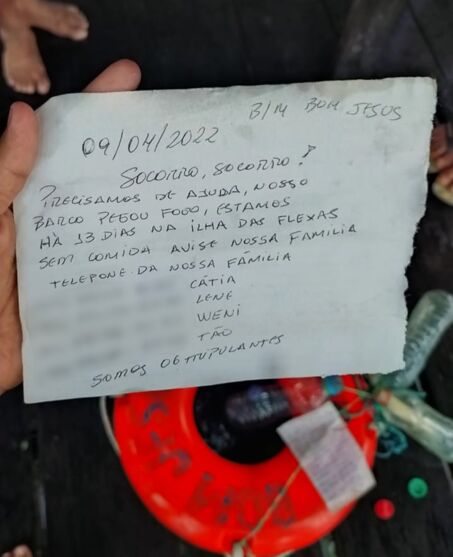 B/M BOM JESUS
09/04/2022
SOCORRO, SOCORRO!
PRECISAMOS DE AJUDA, NOSSO
BARCO PEGOU FOGO, ESTAMOS
HÁ 13 DIAS NA ILHA DAS FLEXAS
SEM COMIDA AVISE NOSSA FAMILIA
TELEPONE DA NOSSA FÁMILIA
CÁTIA
LENE
WENI
TÃO
SOMOS 06 TRIPULANTES